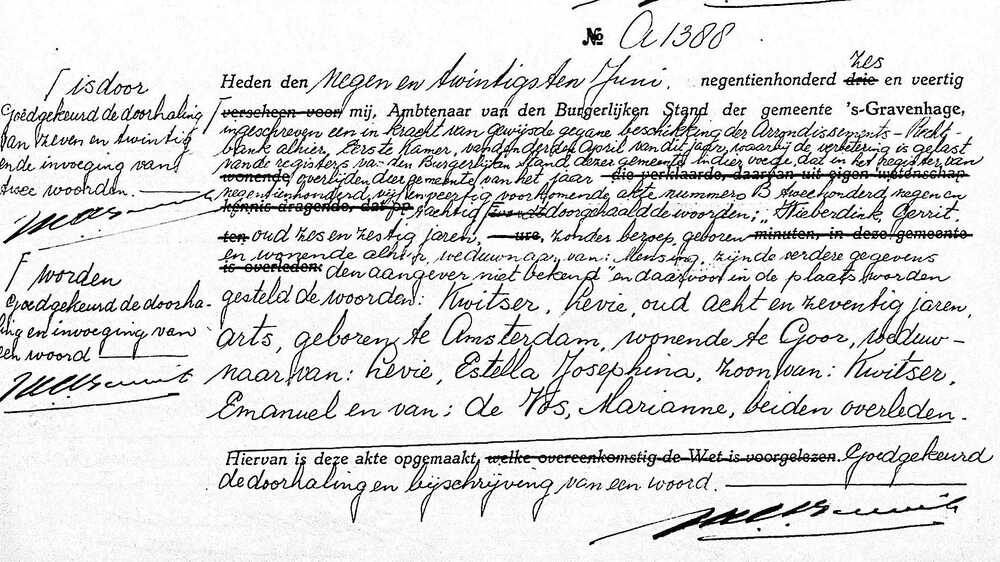 № A1388
zes
Heden den negen en twintigsten Juni, negentienhonderd drie en veertig
verscheen voor mij, Ambtenaar van den Burgerlijken Stand der gemeente 's-Gravenhage,
ingeschreven een in kracht van gewijsde gegane beschikking der Arrondissements-Recht-
bank alhier, Eerste Kamer, van den derden April van dit jaar, waarbij de verbetering is gelast
van de registers van den Burgerlijken Stand dezer gemeente in dier voege, dat in het register van
wonende overlijden dier gemeente van het jaar die verklaarde, daarvan uit eigen wetenschap
negentienhonderd vijf en veertig voorkomende akte nummero B twee honderd negen en
kennis dragende, dat op tachtig doorgehaald de woorden: "Stieberdink, Gerrit
ten oud zes en zestig jaren, ure, zonder beroep, geboren minuten, in deze gemeente
en wonende alhier, weduwnaar van: Mensing, zijnde verdere gegevens
is overleden: den aangever niet bekend" en daarvoor in de plaats worden
gesteld de woorden: Kwitser, Levie, oud acht en zeventig jaren,
arts, geboren te Amsterdam, wonende te Goor, weduw-
naar van: Levie, Estella Josephina, zoon van: Kwitser,
Emanuel en van: de Vos, Marianne, beiden overleden.
Hiervan is deze akte opgemaakt, welke overeenkomstig de Wet is voorgelezen. Goedgekeurd
de doorhaling en bijschrijving van een woord.
is door
Goedgekeurd de doorhaling
van zeven en twintig
en de invoeging van
twee woorden.
worden
Goedgekeurd de doorha-
ling en invoeging van
een woord